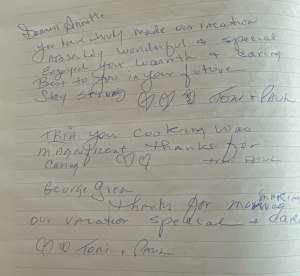 You have truly made our vacation
absolutly wonderful & special
Enjoyed your warmth & caring
Best to you in your future
Stay strong Toni & Paul
your cooking was
magnificent thanks for
caring Paul
George
thanks for making
our vacation special +
Toni, Paul